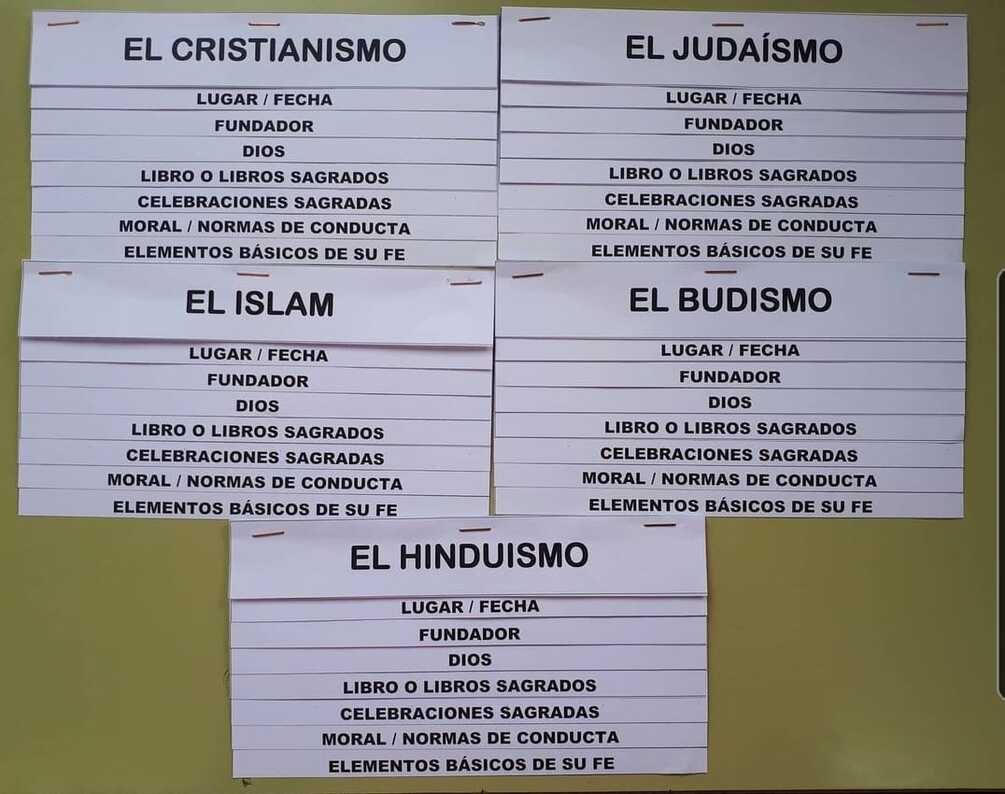 EL CRISTIANISMO
LUGAR / FECHA
FUNDADOR
DIOS
LIBRO O LIBROS SAGRADOS
CELEBRACIONES SAGRADAS
MORAL / NORMAS DE CONDUCTA
ELEMENTOS BÁSICOS DE SU FE
EL JUDAÍSMO
LUGAR / FECHA
FUNDADOR
DIOS
LIBRO O LIBROS SAGRADOS
CELEBRACIONES SAGRADAS
MORAL / NORMAS DE CONDUCTA
ELEMENTOS BÁSICOS DE SU FE
EL ISLAM
LUGAR / FECHA
FUNDADOR
DIOS
LIBRO O LIBROS SAGRADOS
CELEBRACIONES SAGRADAS
MORAL / NORMAS DE CONDUCTA
ELEMENTOS BÁSICOS DE SU FE
EL BUDISMO
LUGAR / FECHA
FUNDADOR
DIOS
LIBRO O LIBROS SAGRADOS
CELEBRACIONES SAGRADAS
MORAL / NORMAS DE CONDUCTA
ELEMENTOS BÁSICOS DE SU FE
EL HINDUISMO
LUGAR / FECHA
FUNDADOR
DIOS
LIBRO O LIBROS SAGRADOS
CELEBRACIONES SAGRADAS
MORAL / NORMAS DE CONDUCTA
ELEMENTOS BÁSICOS DE SU FE